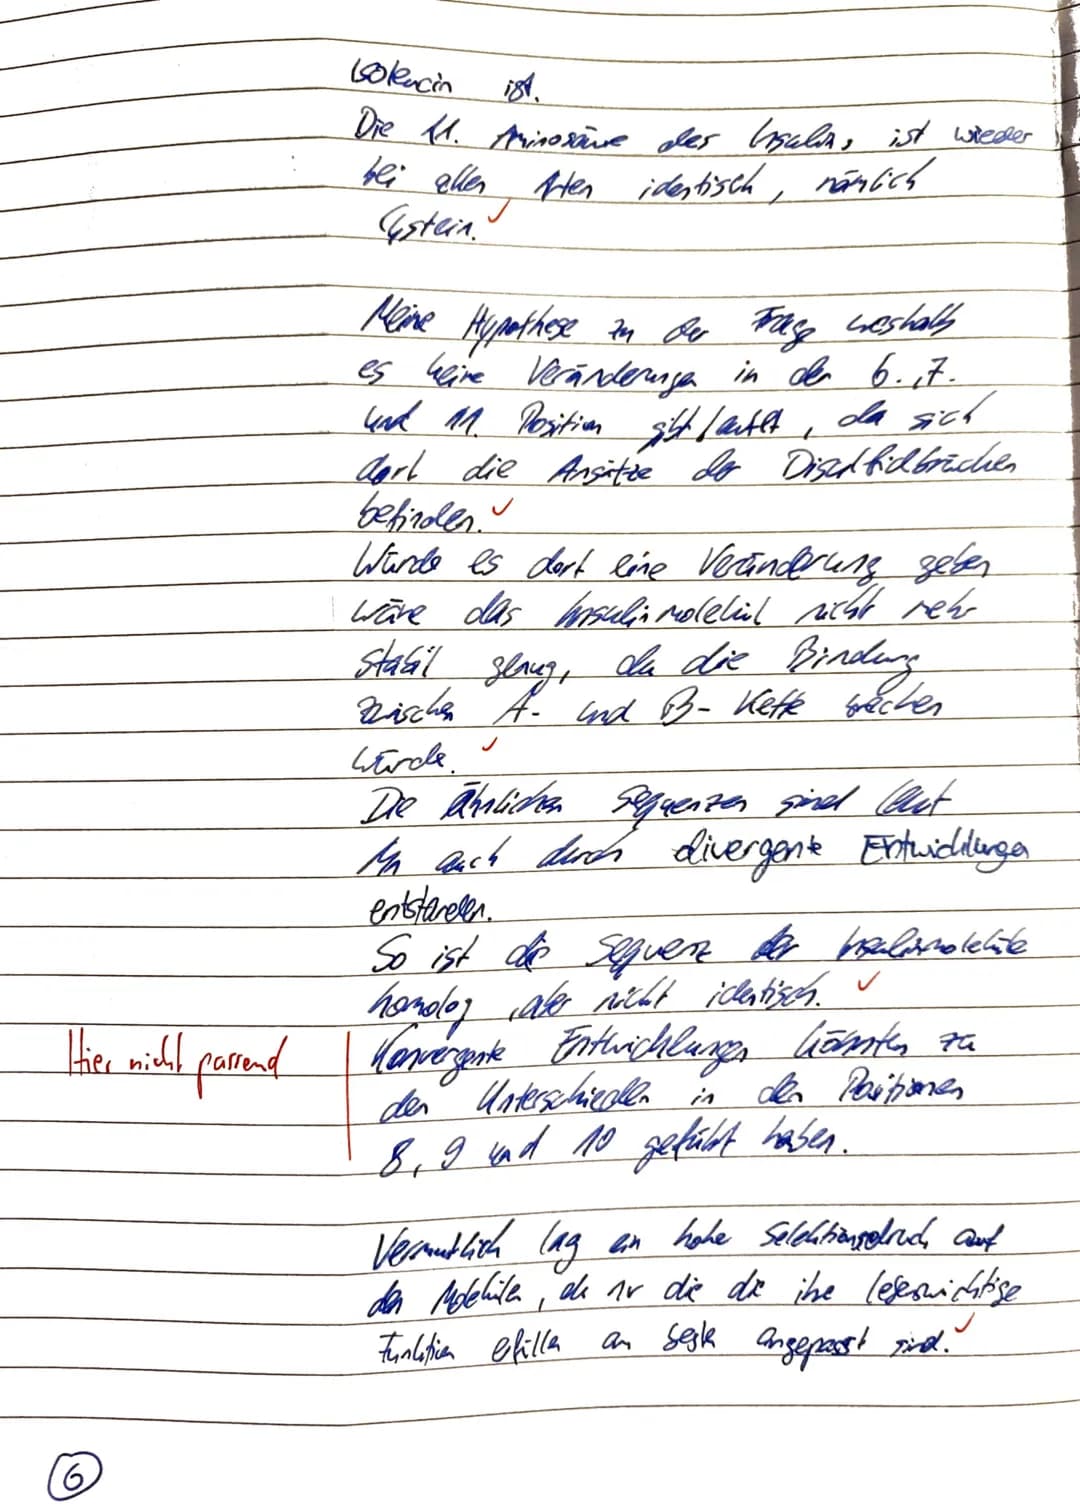 Isoleucin ist.
Die 11. Aminosäure des Insulins ist wieder
bei allen Arten identisch, nämlich
Cystein.
Meine Hypothese zu der Frage weshalb
es keine Veränderungen in der 6., 7.
und 11. Position gibt lautet, da sich
dort die Ansätze der Disulfidbrücken
befinden.
Würde es dort eine Veränderung geben
wäre das Insulinmolekül nicht mehr
stabil genug, da die Bindung
zwischen A- und B-Kette
würde.
Die Ähnlichen Sequenzen sind laut
M1 auch durch divergente Entwicklungen
entstanden.
So ist die Sequenz der Insulinmoleküle
homolog, aber nicht identisch.
Hier nicht passend
Konvergente Entwicklungen könnten zu
den Unterschieden in den Positionen
8, 9 und 10 geführt haben.
Vermutlich lag ein hoher Selektionsdruck auf
den Molekülen, da nur die die ihre lebenswichtige
Funktion erfüllen am besten angepasst sind.
6